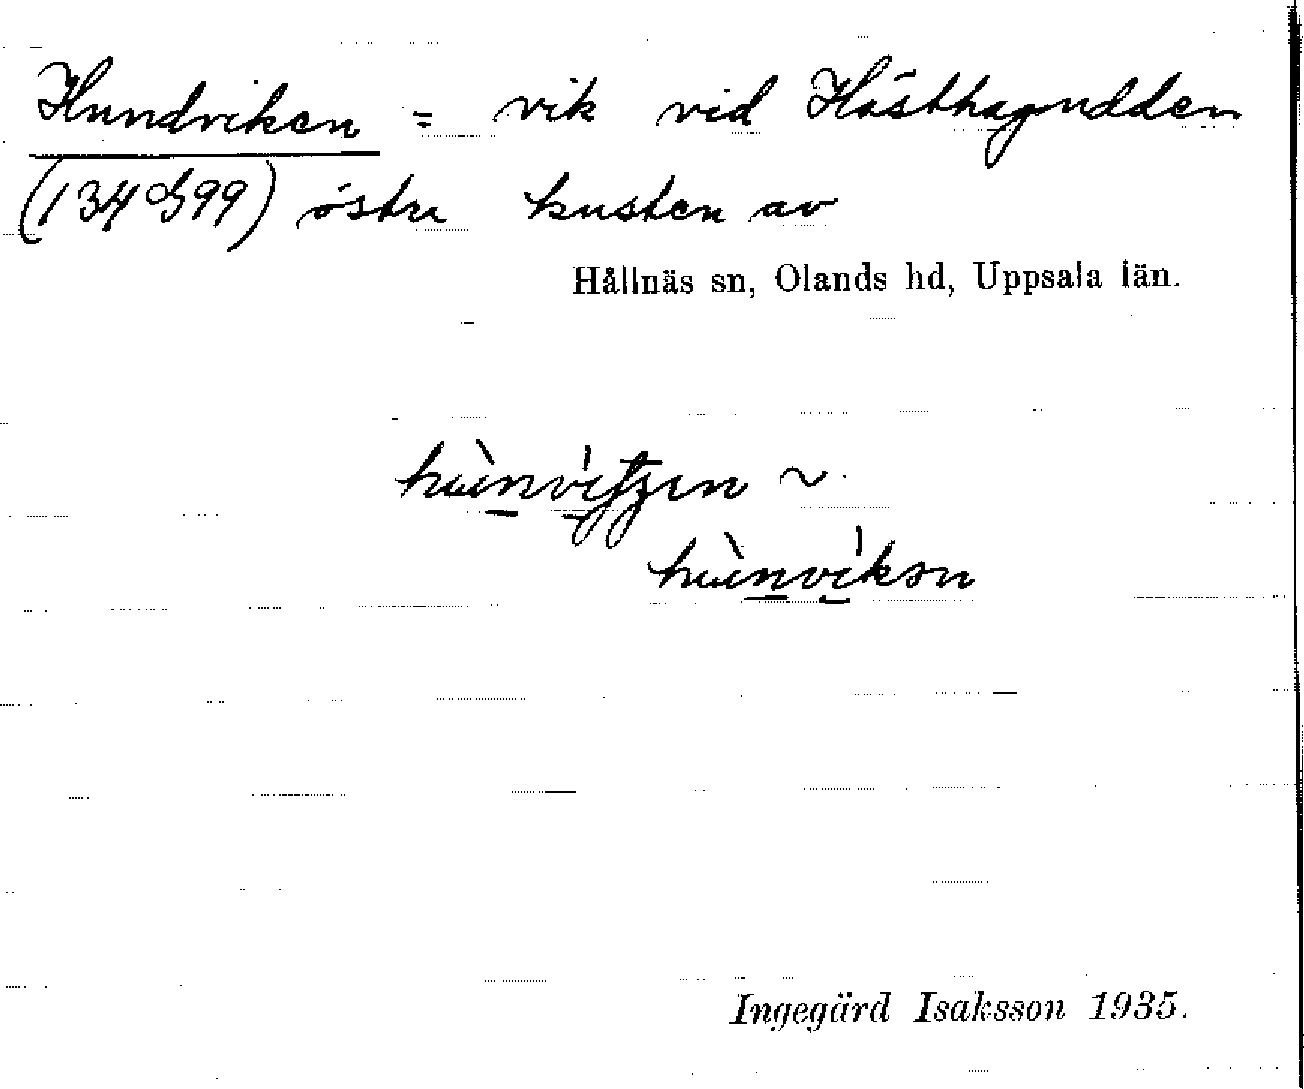 Hundviken = vik vid Hästhagudden
östra kusten av
Hållnäs sn, Olands hd, Uppsala län.
~
Ingegärd Isaksson 1935.